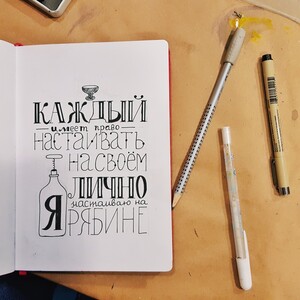 КАЖДЫЙ
имеет право
НАСТАИВАТЬ
НА СВОЁМ
Я ЛИЧНО
настаиваю на
РЯБИНЕ